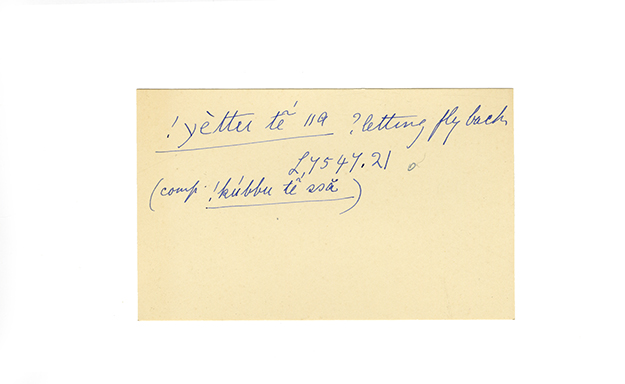 ! yèttu tế ||a ? letting fly back
L, 7547.21
(comp. !kúbbu tế ssă)